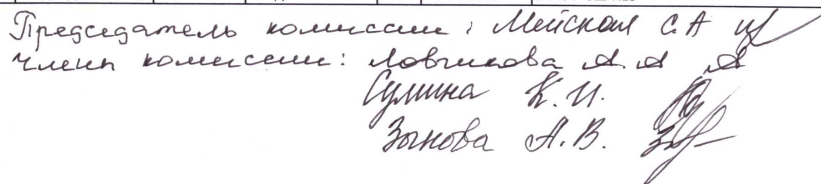 Председатель комиссии: Мейская С.А
Члены комиссии: Ловчикова А.А
Сулина К.И.
Зыкова А.В.